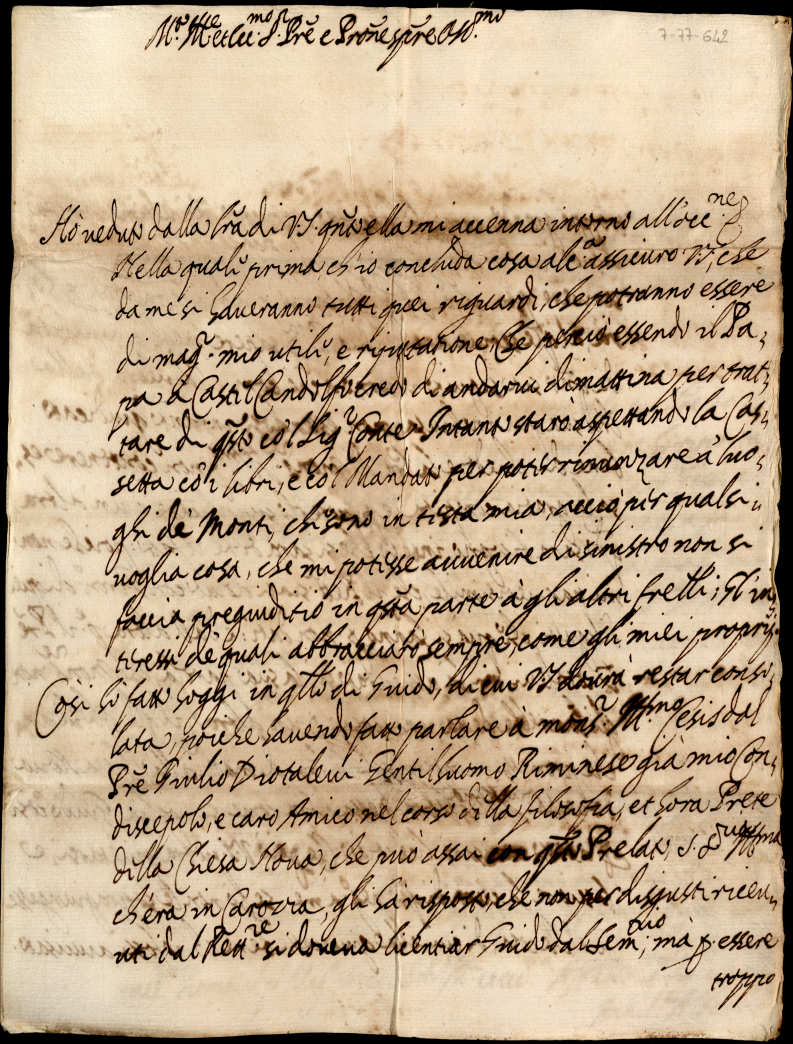 7-77-642
Hò veduto dalla lr̃a di VS. qñto ella mi accenna intorno all'occ.ne
Nella quale prima, ch'io concluda cosa alc.a assicuro VS, che
da me si haveranno tutti quei riguardi, che potranno essere
di mag.r mio utile, e riputatione. Che perciò essendo il Pa-
pa à Castel Gandolfo credo di andarvi dimattina per trat-
tare di qsto co'l Sig.r Conte. Intanto starò aspettando la Cas-
setta co' i libri, e co'l Mandato per poter rinunzare à luo-
ghi de' Monti, che sono in testa mia, acciò per qualsi-
voglia cosa, che mi potesse avvenire di sinistro non si
faccia pregiuditio in qsta parte à gli altri frelli; gl'in-
teressi de' quali abbracciato sempre, come gli miei proprij.
Così hò fatto hoggi in qllo di Guido, di cui VS dovrà restar conso-
lata, poiche havendo fatto parlare à mons.r Ill.mo Cesis dal
Prẽ Giulio Diotalevi Gentilhuomo Riminese già mio Con-
discepolo, e caro Amico nel corso della filosofia, et hora Prete
della Chiesa Nova, che può assai con qsto Prelato, S. S.
ch'era in Carozza, gli hà risposto, che non per disgusti riceu-
uti dal Rett.re si doveva licentiar Guido dal Sem.rio, mà p essere
troppo